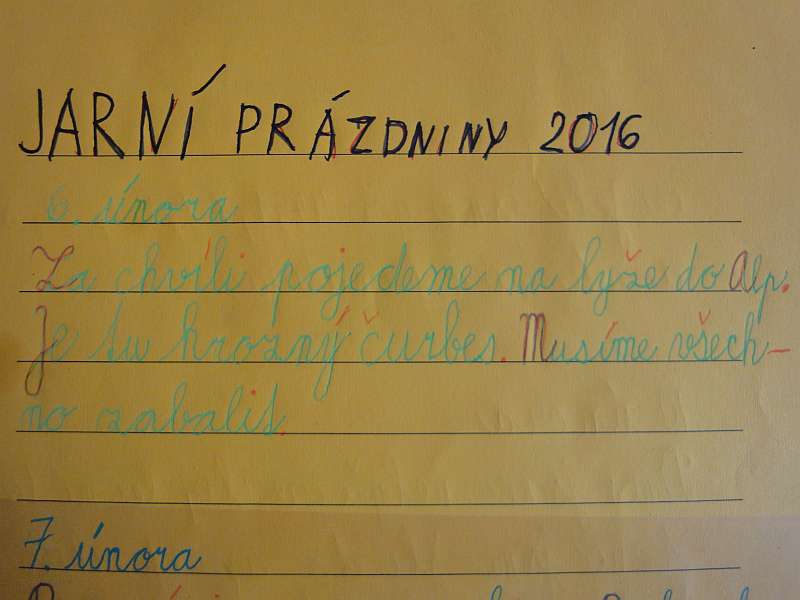 JARNÍ PRÁZDNINY 2016
6. února
Za chvíli pojedeme na lyže do Alp.
Je tu hrozný čurbes. Musíme všech-
no zabalit.
7. února